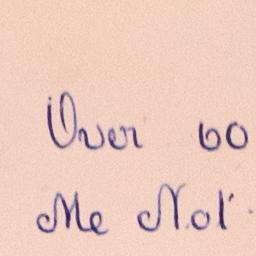 Over 60
Me Not